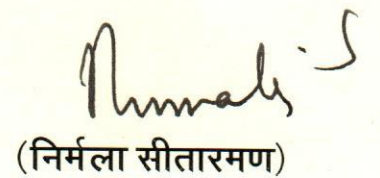 Nirmala S
(निर्मला सीतारमण)